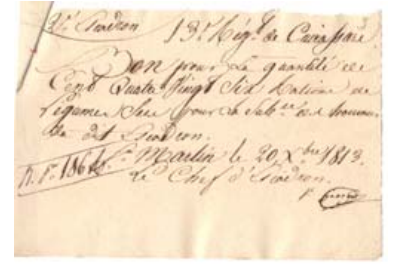 3e. Escadron 13e. Régt. de Cuirassiers
Bon pour la quantité de
Cent Quatre Vingt Six Rations de
Légumes Secs pour la Subce. des hommes
du dit Escadron.
P. Pr. 186 Rs. St. Martin le 20 Xbre 1813.
Le Chef d'Escadron.